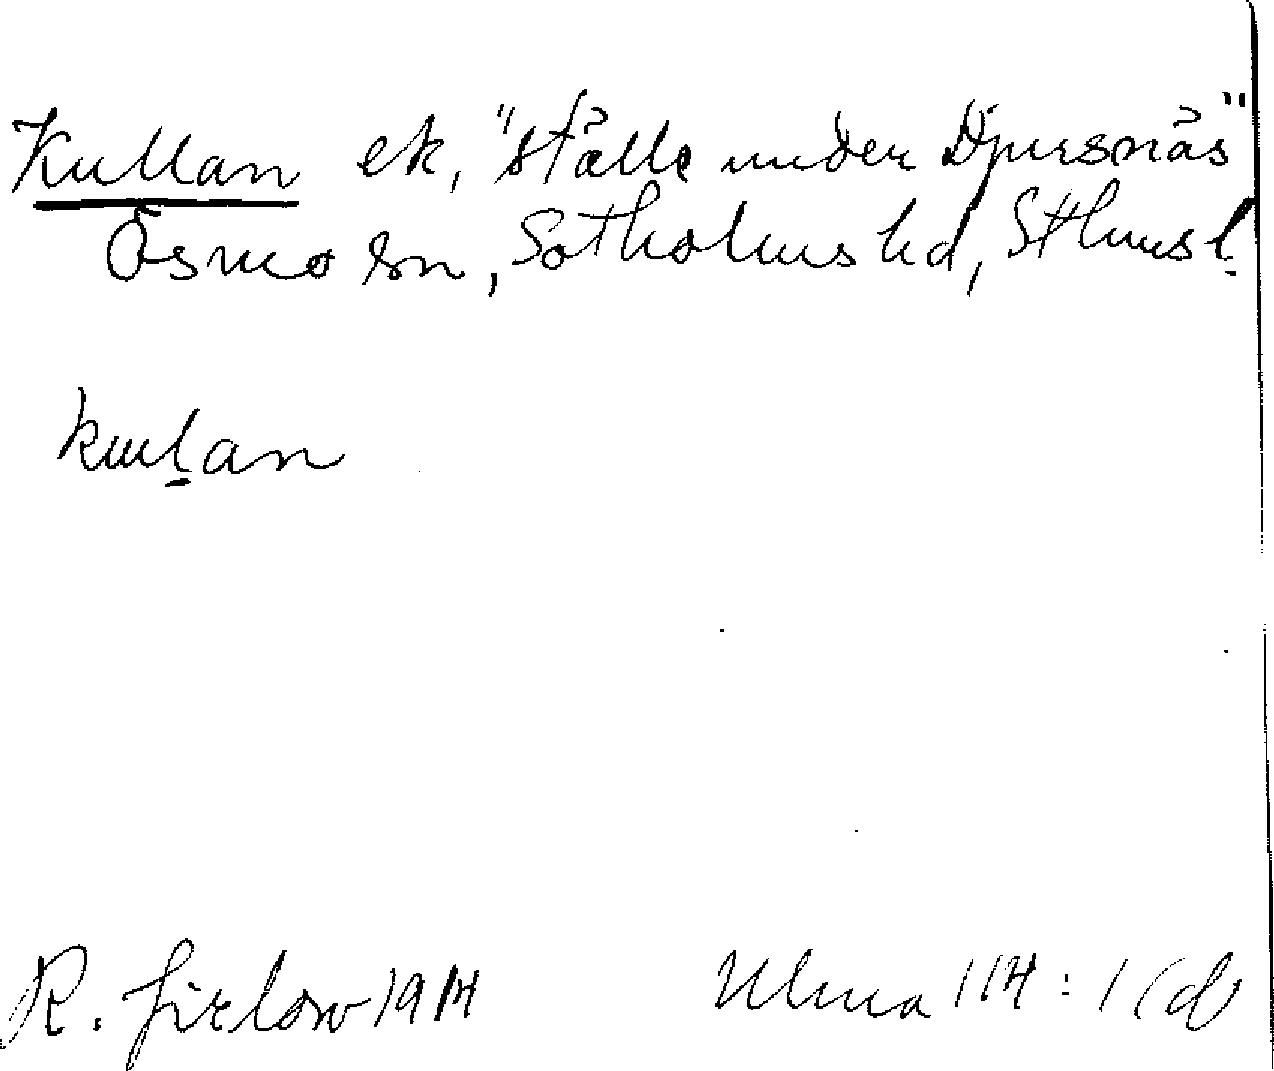 Kullan ek, "ställe under Djursnäs"
Ösmo sn, Sotholms hd, Sthms l.
kuḷan
R. Jirlow 1914
Ulma 114:1(d